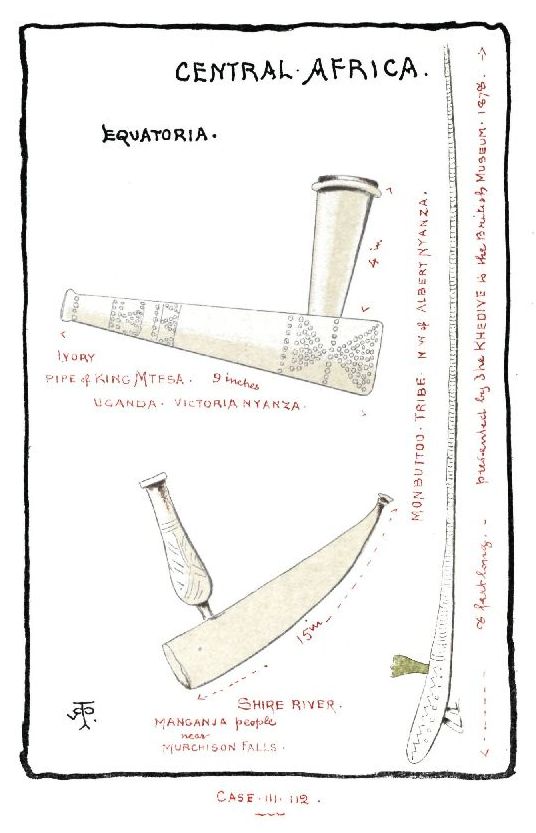 CENTRAL · AFRICA.
EQUATORIA.
4 in
IVORY
PIPE of KING MTESA. 9 inches
UGANDA. VICTORIA NYANZA.
MONBUTTOO · TRIBE. N W of ALBERT NYANZA.
8 feet long. - presented by the KHEDIVE to the British MUSEUM. 1878.
15 in
SHIRE RIVER.
MANGANJA people
near
MURCHISON FALLS.
CASE · III. 112.